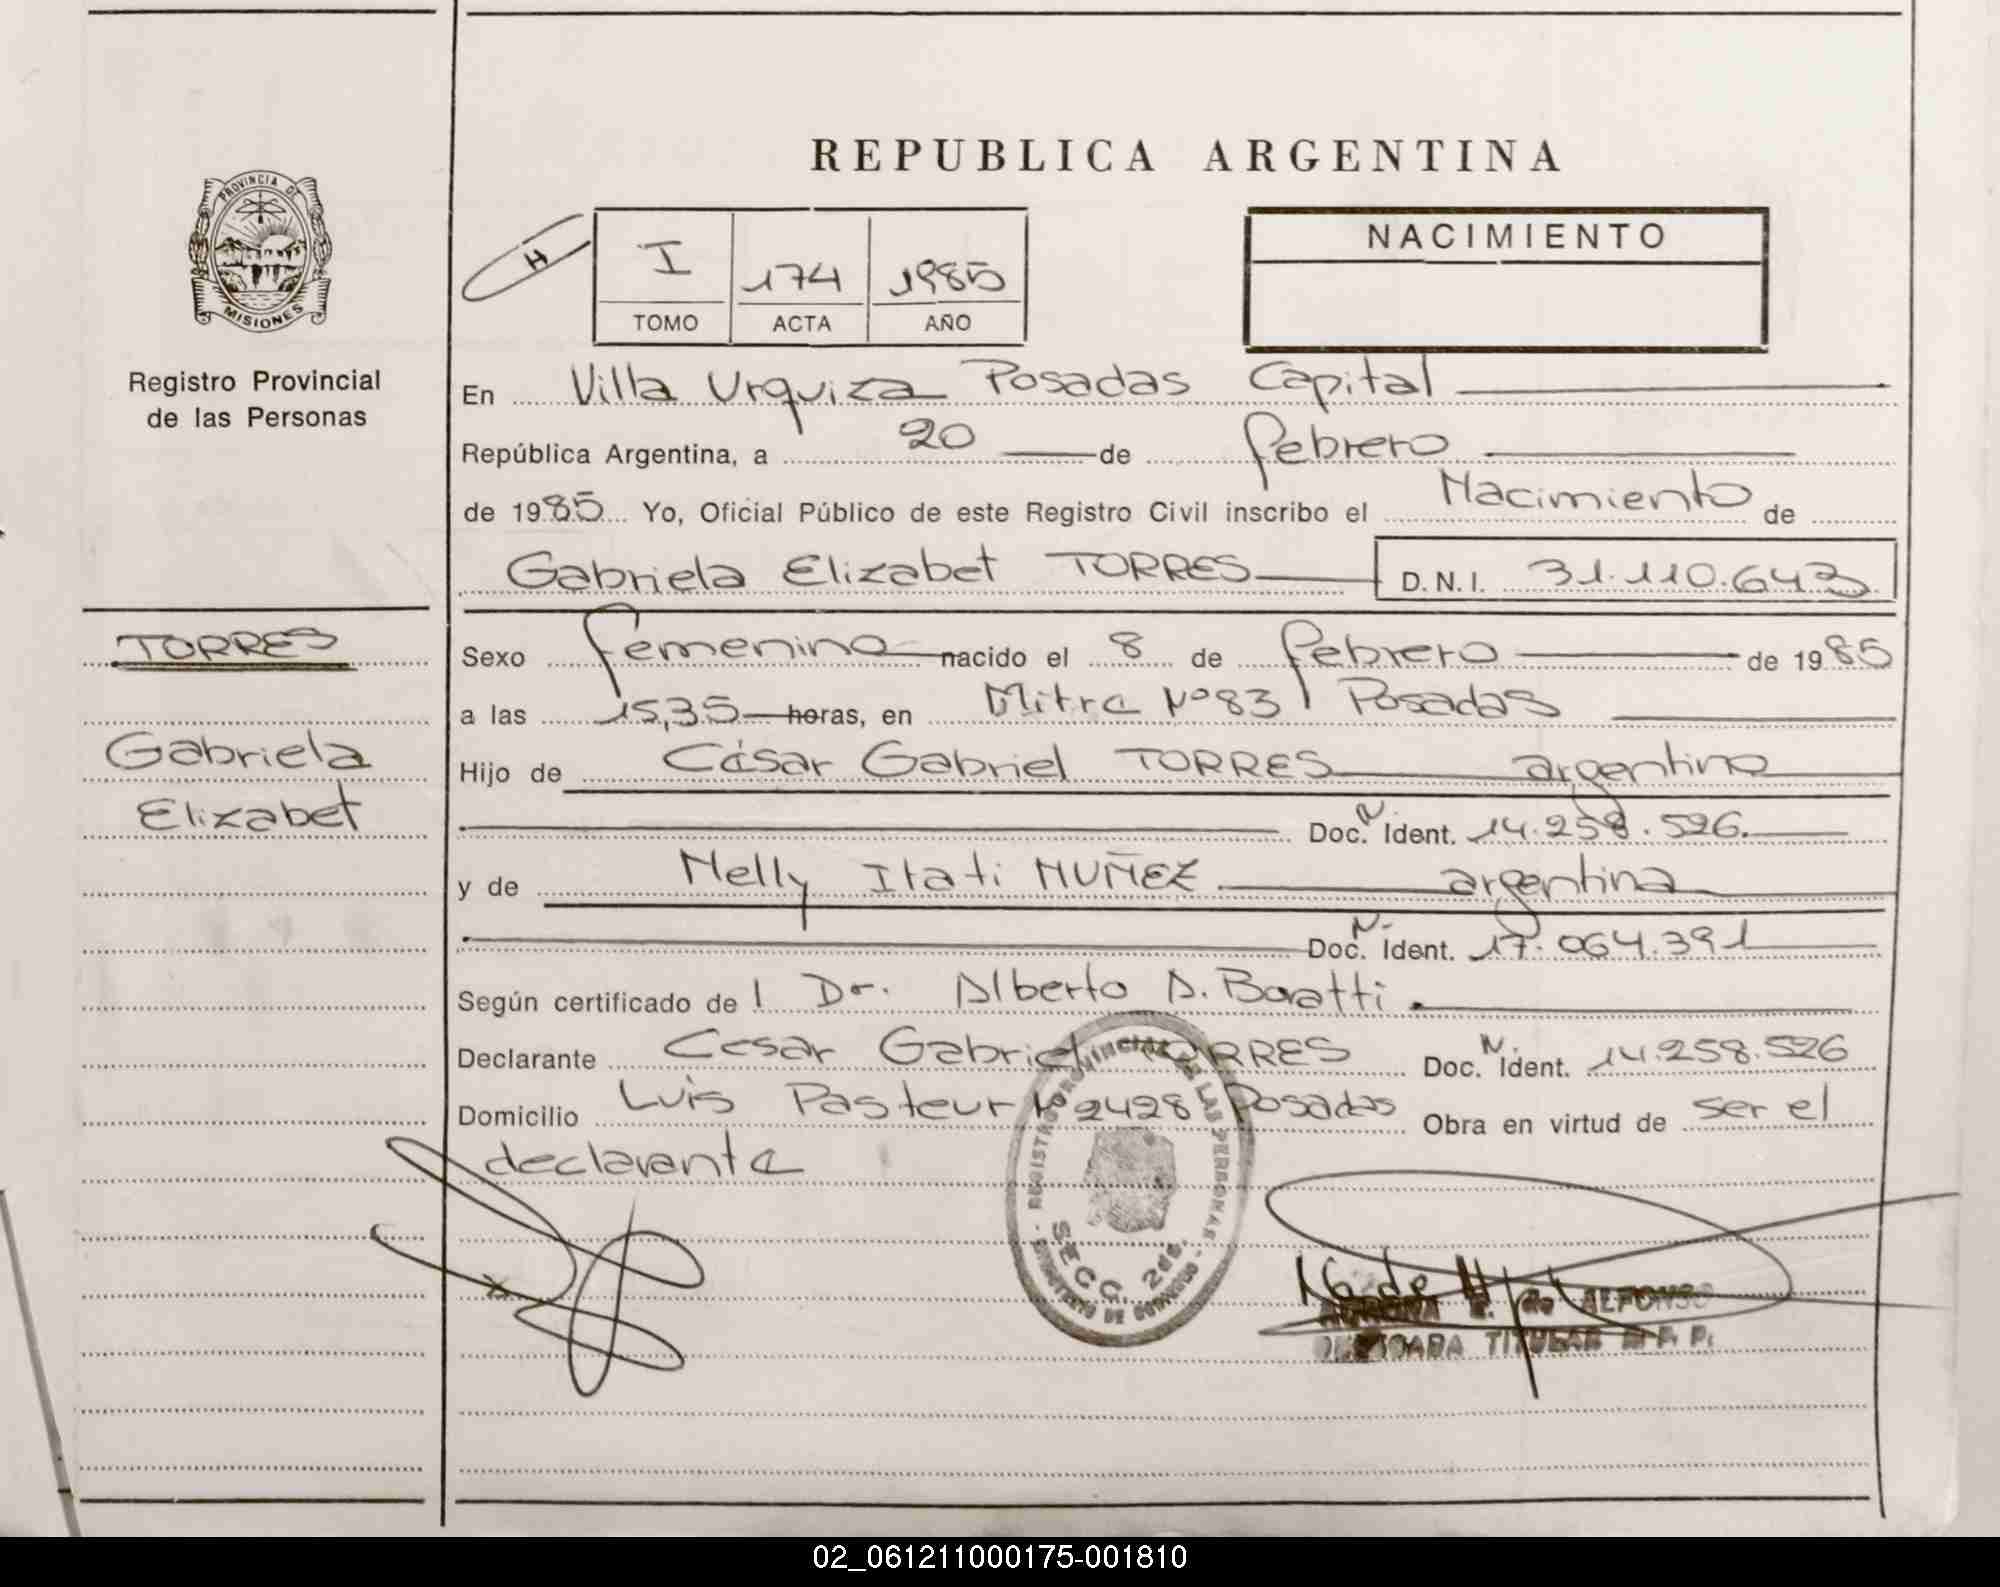 REPUBLICA ARGENTINA
PROVINCIA DE
MISIONES
Registro Provincial
de las Personas
H
I 174 1985
TOMO ACTA AÑO
NACIMIENTO
En Villa Urquiza Posadas Capital
República Argentina, a 20 de febrero
de 1985 Yo, Oficial Público de este Registro Civil inscribo el Nacimiento de
Gabriela Elizabet TORRES D.N.I. 31.110.643
TORRES
Gabriela
Elizabet
Sexo femenino nacido el 8 de febrero de 1985
a las 15,35 horas, en Mitre Nº 83 Posadas
Hijo de César Gabriel TORRES argentino
Doc. N. Ident. 14.258.526.
y de Nelly Itati NUÑEZ argentina
Doc. N. Ident. 17.064.391
Según certificado de Dr. Alberto A. Boratti
Declarante Cesar Gabriel TORRES Doc. N. Ident. 14.258.526
Domicilio Luis Pasteur Nº 2428 Posadas Obra en virtud de ser el
declarante
REGISTRO PROVINCIAL DE LAS PERSONAS
SECC. 2da.
MINISTERIO DE GOBIERNO
de ALFONSO
TITULAR
02_061211000175-001810